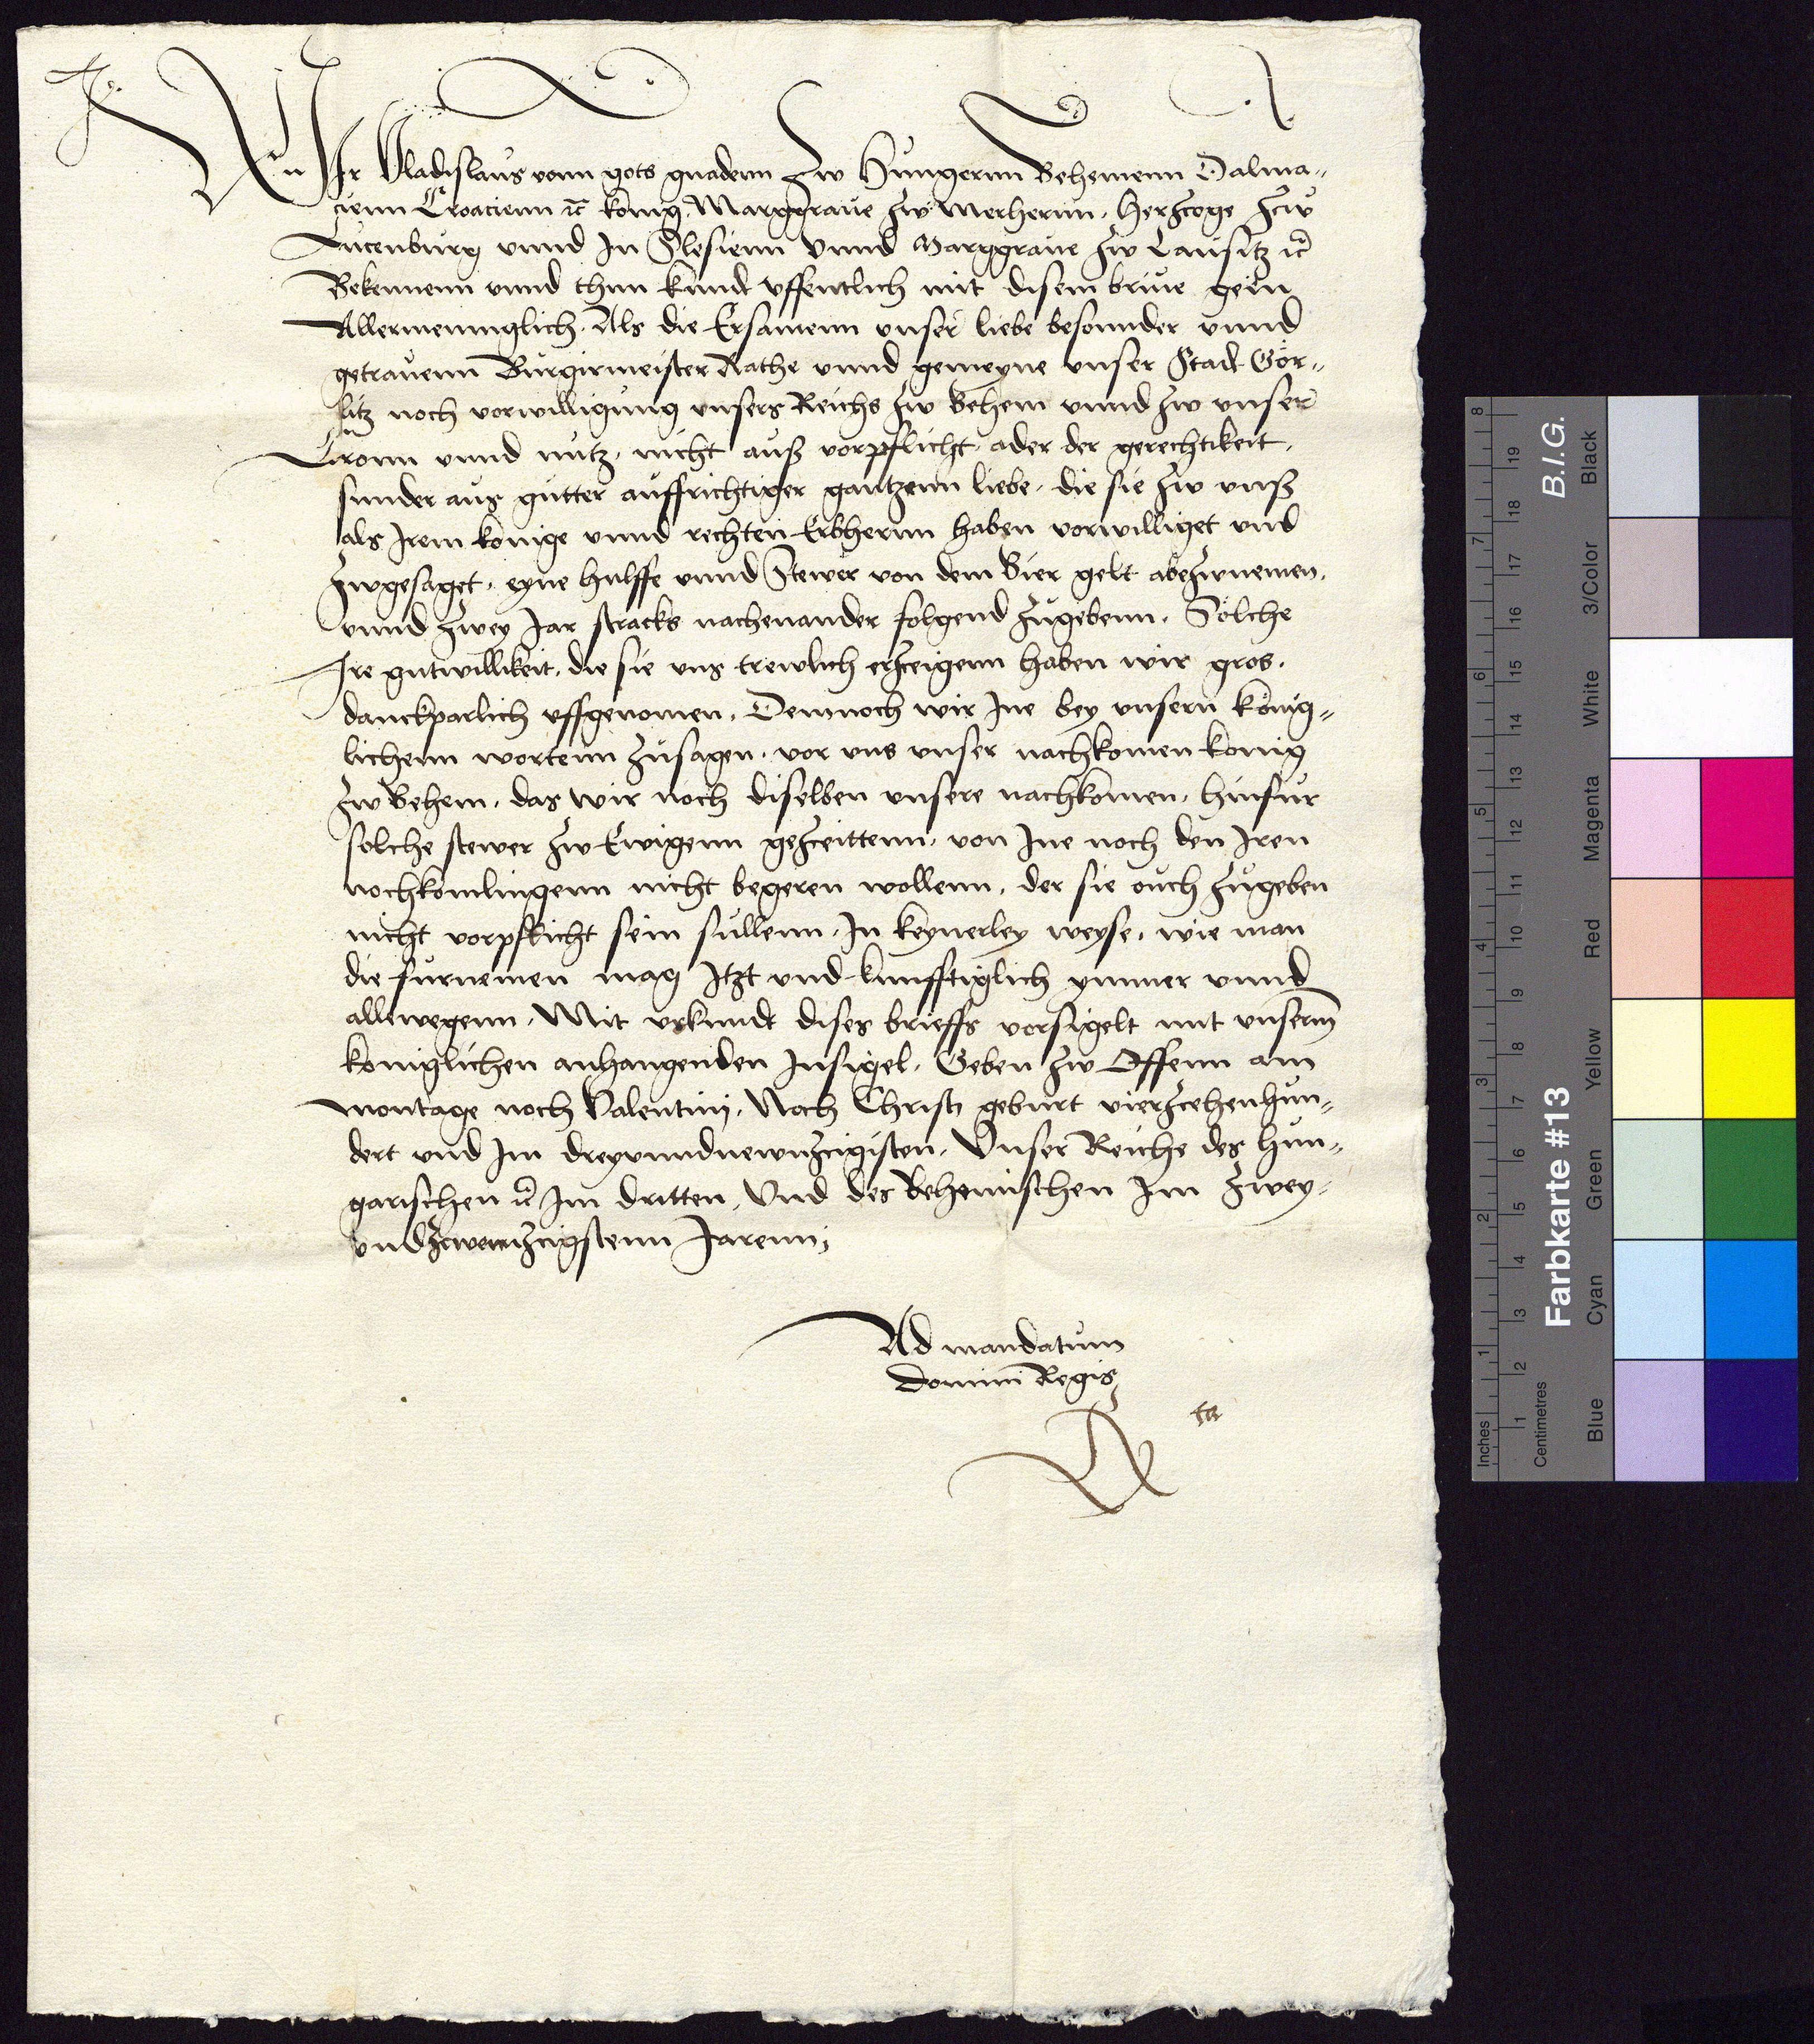 WIr Vladislaus vonn gots gnadenn Zw Hungernn Behemenn Dalma„
cienn Croacienn ꝛc konig, Marggraue Zw Merhernn, herZcoge Zcw
Lucenburg vnnd In Slesienn Vnnd Marggraue Zw Lausitz ꝛc
Bekennenn vnnd thun kundt vffentlich mit disem briue gein
Allermenniglich. Als die Ersamenn vnser liebe besonnder vnnd
getrauenn Burgirmeister Rathe vnnd gemeyne vnser Stadt Gör„
litz noch vorwilligung vnsers Reichs Zw Behem vnnd Zw vnser
Cronn vnnd nutz, nicht auß vorpflicht ader der gerechtikeit,
sunder aus gutter auffrichtiger gantzenn liebe, die sie Zw vnß
als Irem könige vnnd rechten Erbhernn haben vorwilliget vnd
Zwgesaget, eyne hulffe vnnd Stewer von dem Bier gelt abeZwnemen,
vnnd Zwey Jar stracks nachenander folgend Zugebenn. Solche
Ire gutwillikeit, die sie vns trewlich erZceigenn haben wir gros,
danckparlich vffgenomen, Demnoch wir Ine bey vnsern könig„
lichenn wortenn Zusagen, vor vns vnser nachkomen konig
Zw Behem, das wir noch diselben vnsere nachkomen, hinfur
solche stewer Zw Ewigenn geZceittenn, von Ine noch den Iren
nochkomlingenn nicht begeren wollenn, der sie ouch Zugeben
nicht vorpflicht sein sullenn, In keynerley weyse, wie man
die furnemen mag Itzt vnd kunfftiglich ymmer vnnd
allewegenn, Mit vrkundt dises brieffs vorsigelt mit vnserm
koniglichen anhangenden Insigel, Geben Zw Offenn am
montage noch Valentinj, Noch Christi geburt vierZcehenhun„
dert vnd Im dreyvnndnewnZcigisten, Vnser Reiche des hun„
garischen ꝛc Im dritten, Vnd des Behemischen Im Zwey„
vndZcwenZcigstenn Jarenn;
Ad mandatum
Domini Regis
8 7 6 5 4 3 2 1 Inches
19 18 17 16 15 14 13 12 11 10 9 8 7 6 5 4 3 2 1 Centimetres
Farbkarte #13 B.I.G.
Blue Cyan Green Yellow Red Magenta White 3/Color Black